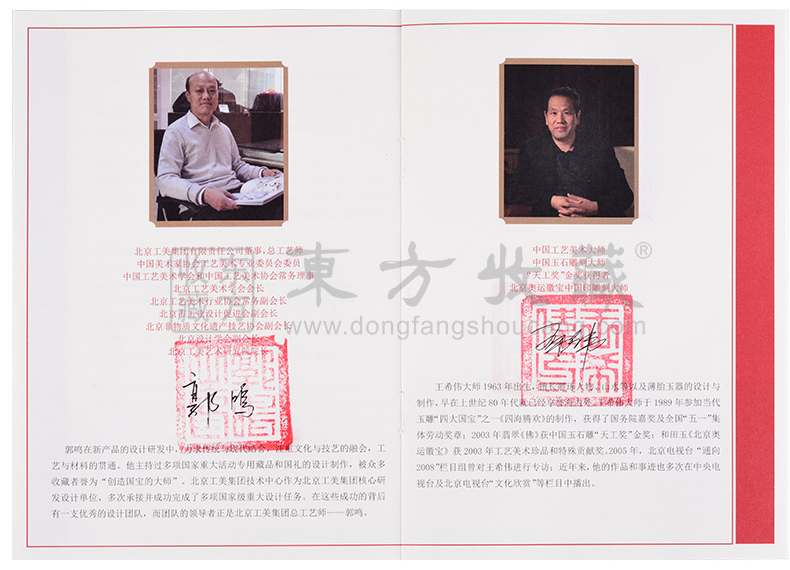 北京工美集团有限责任公司董事,总工艺师
中国美术家协会工艺美术专业委员会委员
中国工艺美术学会和中国工艺美术协会常务理事
北京工艺美术学会会长
北京工艺美术行业协会常务副会长
北京非物质文化遗产技艺协会副会长
北京设计学会副会长
郭鸣
郭鸣在新产品的设计研发中,力求传统与现代结合,注重文化与技艺的融会,工
艺与材料的贯通。他主持过多项国家重大活动专用藏品和国礼的设计制作,被众多
收藏者誉为“创造国宝的大师”。北京工美集团技术中心作为北京工美集团核心研
发设计单位,多次承接并成功完成了多项国家级重大设计任务。在这些成功的背后
有一支优秀的设计团队,而团队的领导者正是北京工美集团总工艺师——郭鸣。
中国工艺美术大师
中国玉石雕刻大师
“天工奖”金奖获得者
北京奥运徽宝中国印雕刻大师
王希伟大师1963年出生,擅长雕琢人物、山水等以及薄胎玉器的设计与
制作,早在上世纪80年代就已经享誉海内外。王希伟大师于1989年参加当代
玉雕“四大国宝”之一《四海腾欢》的制作,获得了国务院嘉奖及全国“五一”集
体劳动奖章;2003年翡翠《佛》获中国玉石雕“天工奖”金奖;和田玉《北京奥
运徽宝》获2003年工艺美术珍品和特殊贡献奖。2005年,北京电视台“通向
2008”栏目组曾对王希伟进行专访;近年来,他的作品和事迹也多次在中央电
视台及北京电视台“文化欣赏”等栏目中播出。
東方收藏®
www.dongfangshoucang.com